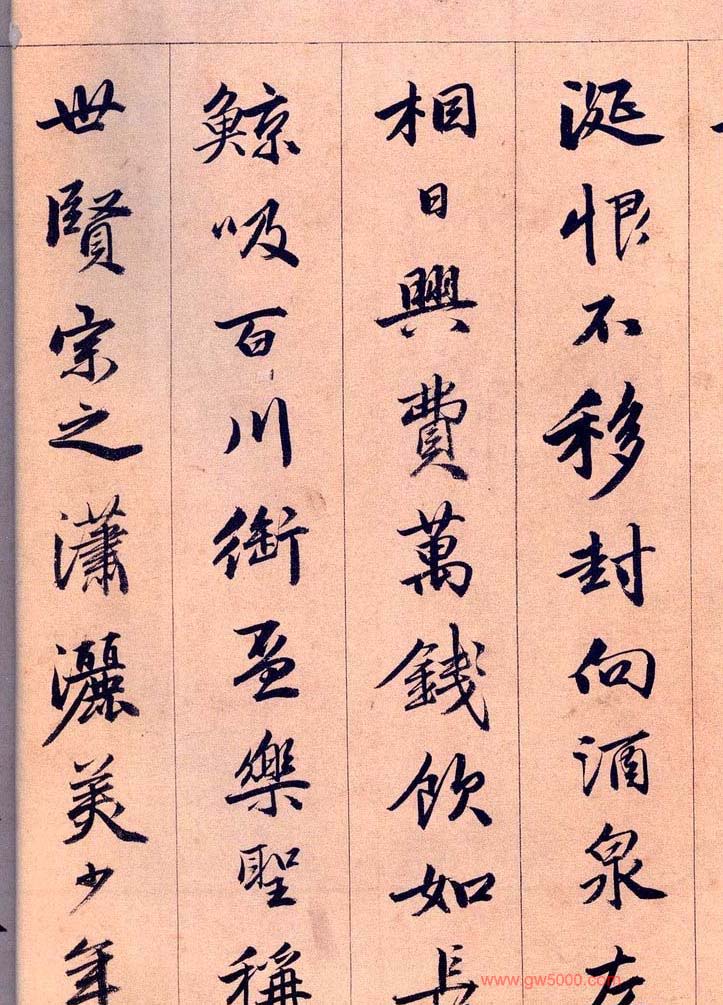 涎恨不移封向酒泉左
相日興費萬錢飲如長
鯨吸百川銜盃樂聖稱
世賢宗之瀟灑美少年
www.gw5000.com